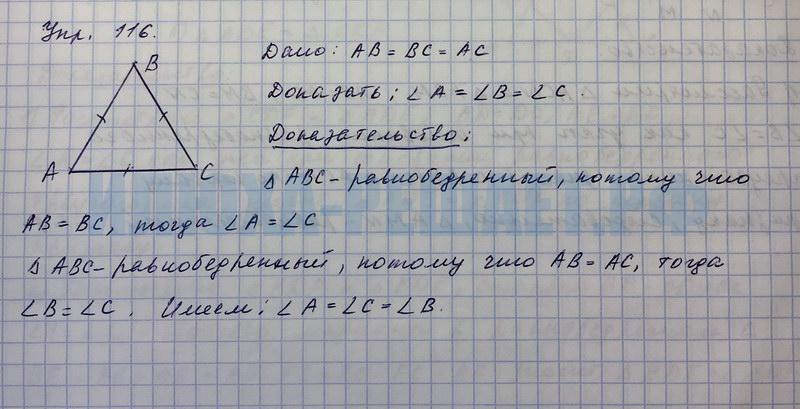 Упр. 116.
B
A
C
Дано: AB = BC = AC
Доказать: ∠A = ∠B = ∠C.
Доказательство:
△ABC - равнобедренный, потому что
AB = BC, тогда ∠A = ∠C
△ABC - равнобедренный, потому что AB = AC, тогда
∠B = ∠C. Имеем: ∠A = ∠C = ∠B.